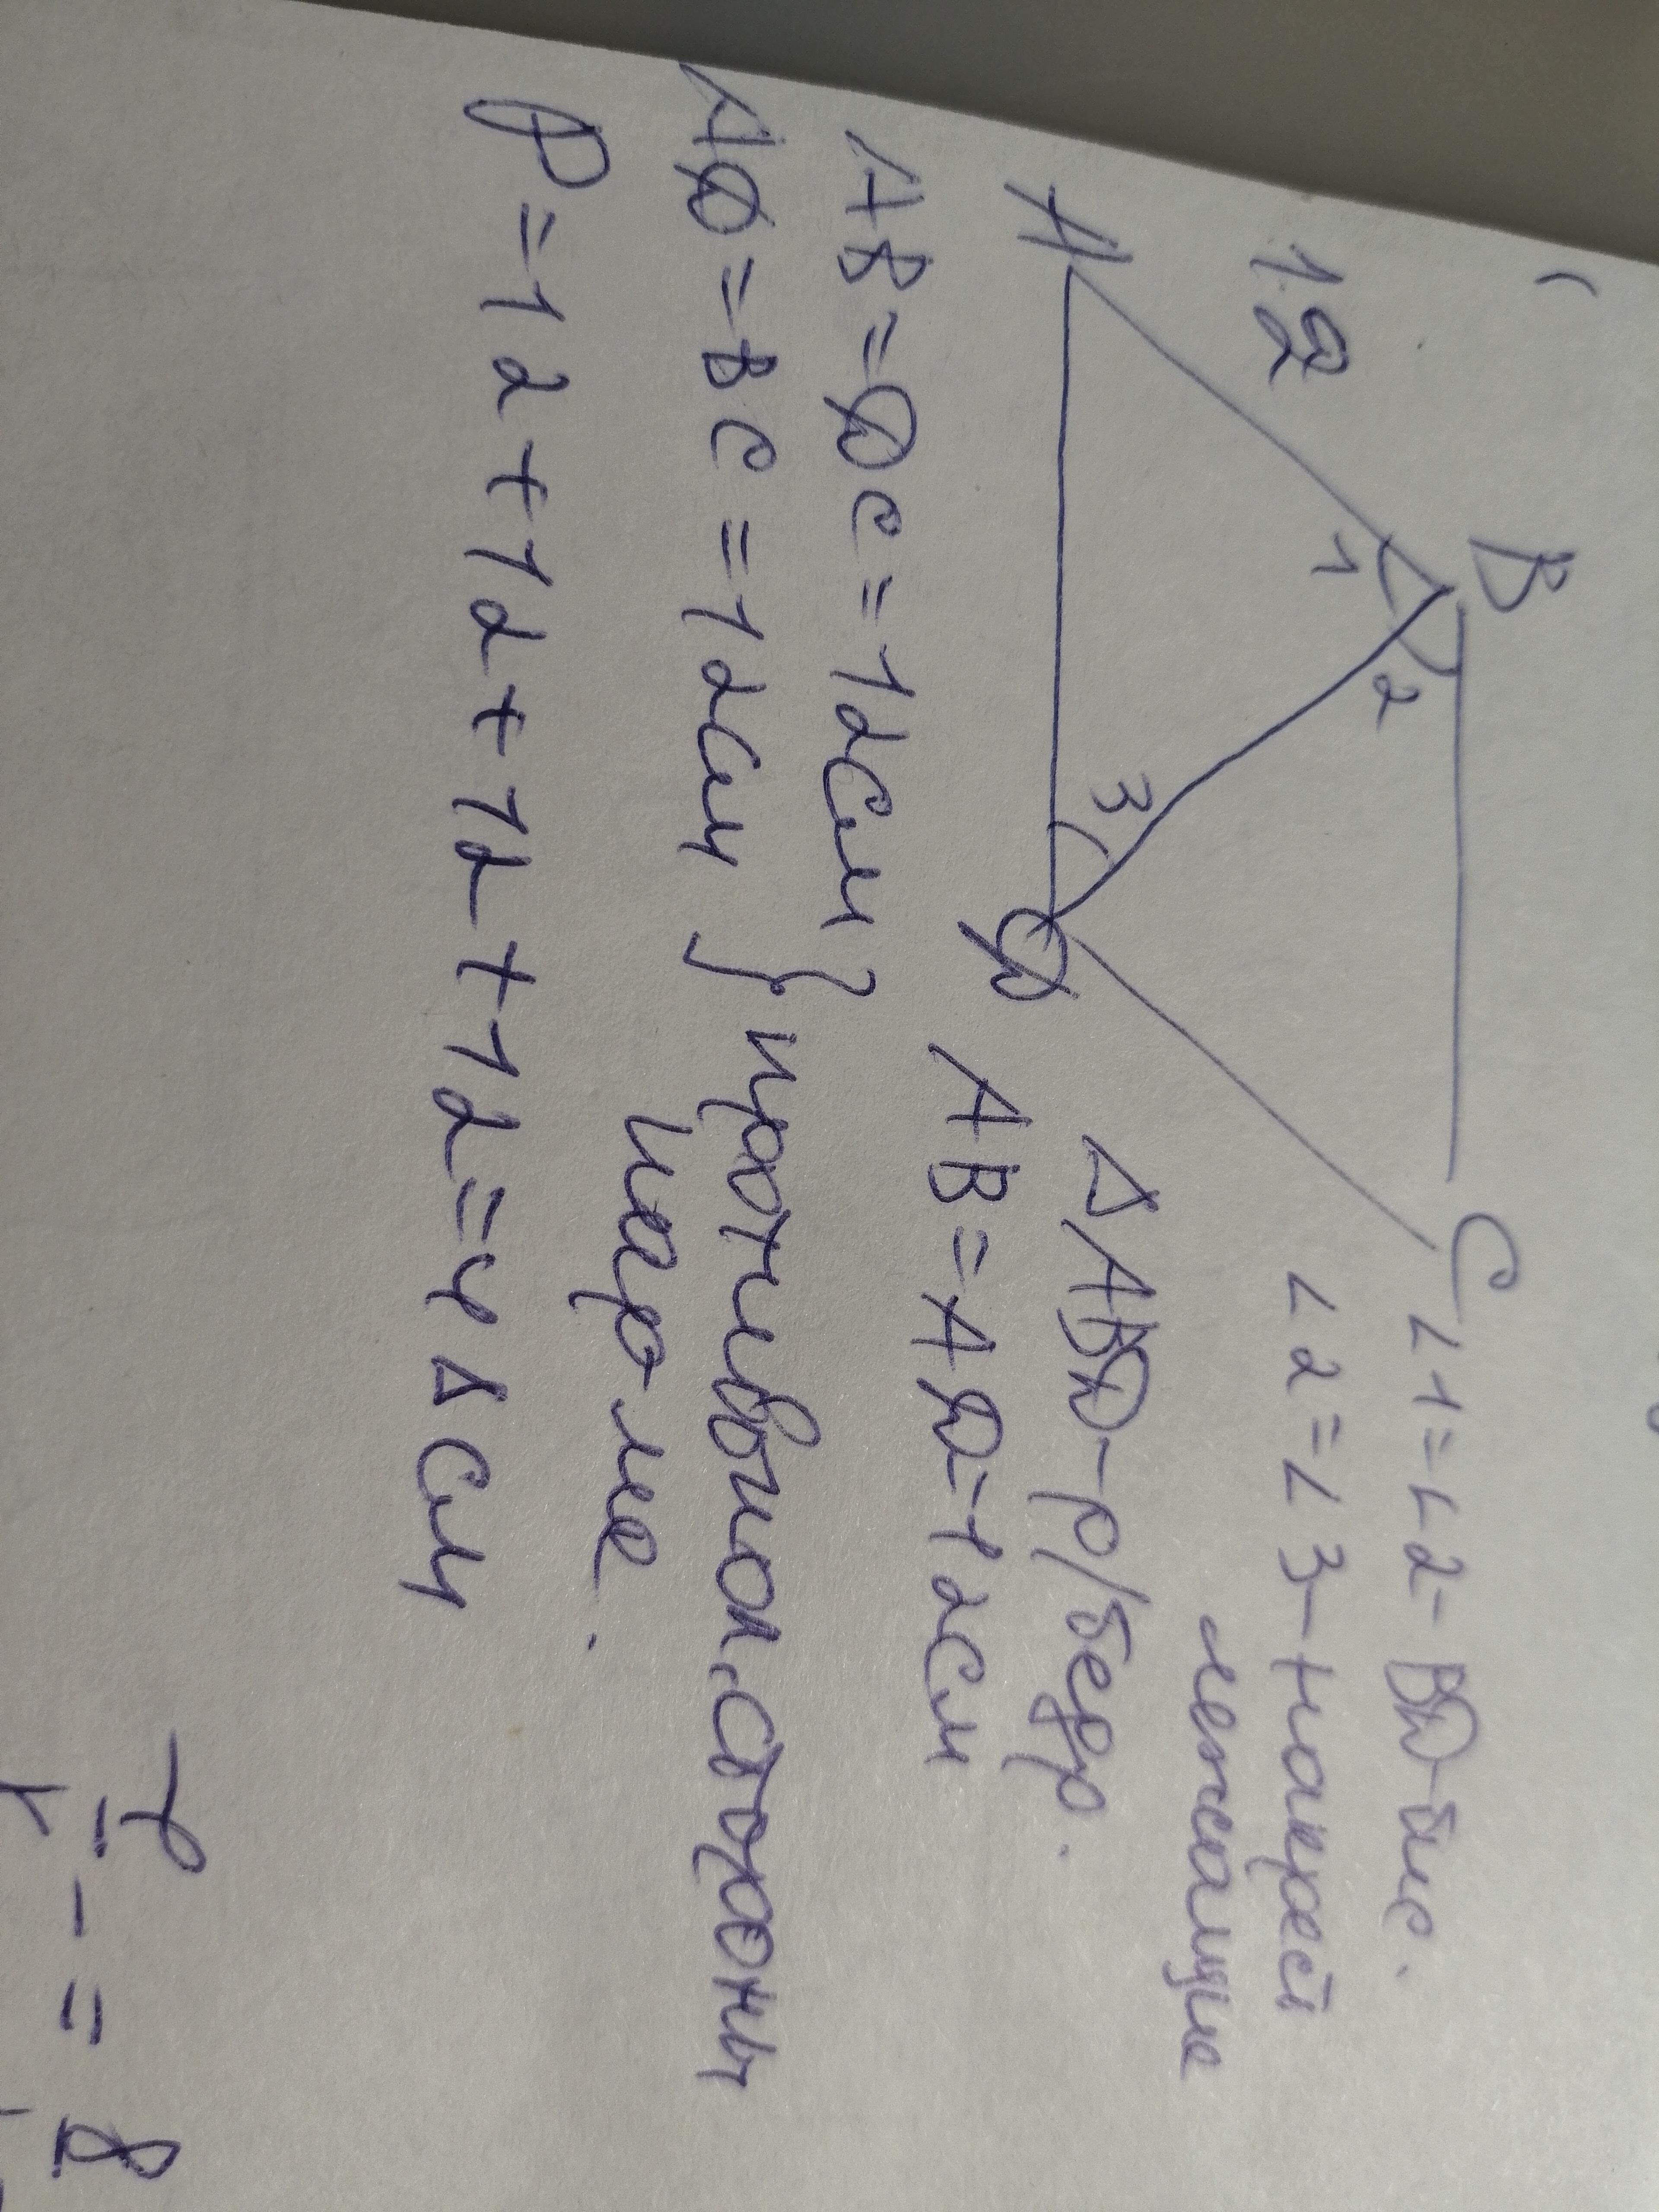 B
C
∠1=∠2-BD-бис.
12
1
2
∠2=∠3-накрест
лежащие
3
A
D
△ABD-р/бедр.
AB=AD=12см
AB=DC=12см
AD=BC=12см } противопол. стороны
пар-ме.
P=12+12+12+12=48см